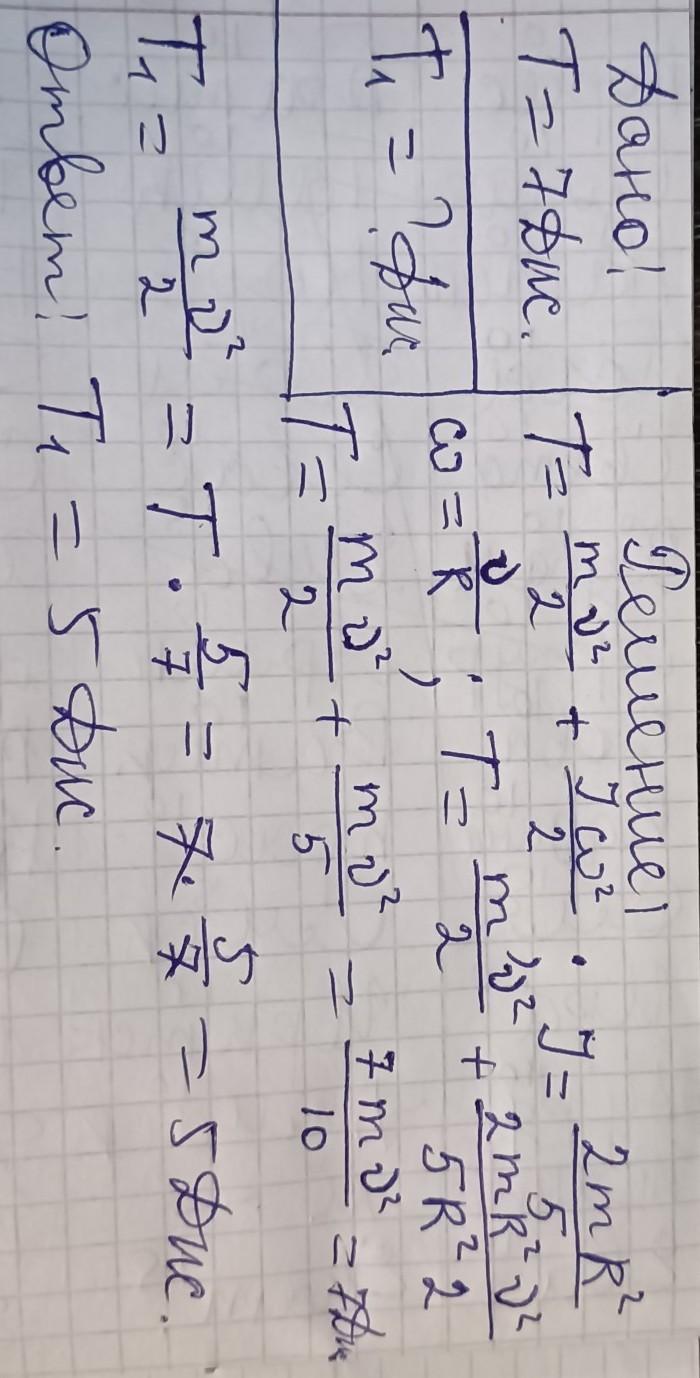 Дано!
T = 7 Дж.
T₁ = ? Дж
Решение!
T = mv²/2 + Jω²/2 . J = 2mR²/5
ω = v/R ; T = mv²/2 + 2mR²v²/5R²2
T = mv²/2 + mv²/5 = 7mv²/10 = 7Дж
T₁ = mv²/2 = T · 5/7 = 7 · 5/7 = 5 Дж.
Ответ! T₁ = 5 Дж.